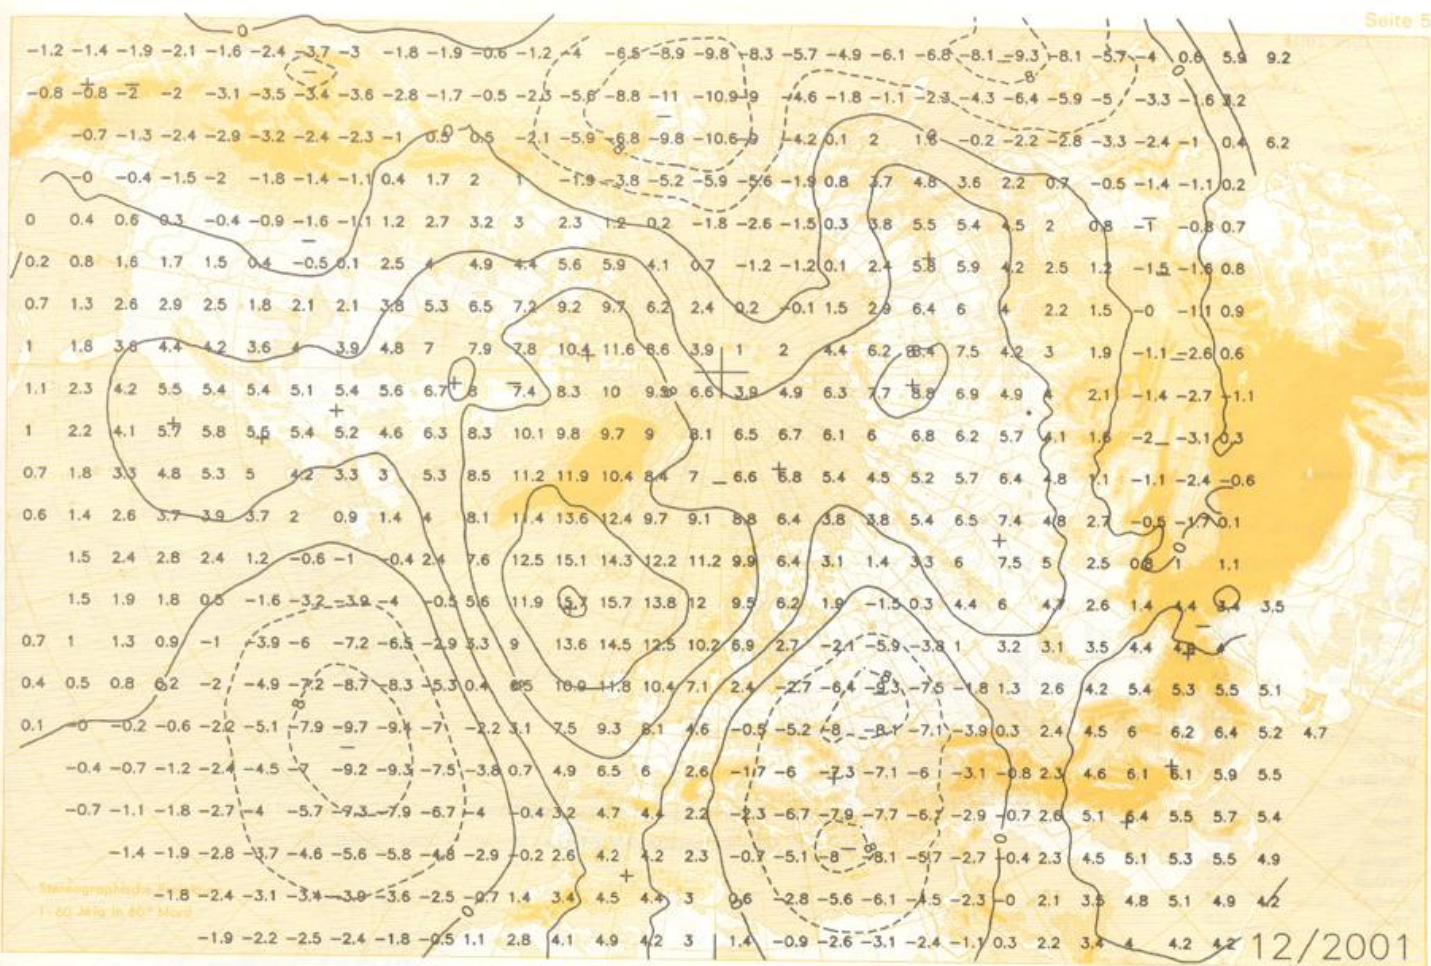 Seite 5
-1.2 -1.4 -1.9 -2.1 -1.6 -2.4 -3.7 -3 -1.8 -1.9 -0.6 -1.2 -4 -6.5 -8.9 -9.8 -8.3 -5.7 -4.9 -6.1 -6.8 -8.1 -9.3 -8.1 -5.7 -4 0.6 5.9 9.2
-0.8 -0.8 -2 -2 -3.1 -3.5 -3.4 -3.6 -2.8 -1.7 -0.5 -2.3 -5.6 -8.8 -11 -10.9 -9 -4.6 -1.8 -1.1 -2.3 -4.3 -6.4 -5.9 -5 -3.3 -1.6 3.2
-0.7 -1.3 -2.4 -2.9 -3.2 -2.4 -2.3 -1 0.5 0.5 -2.1 -5.9 -6.8 -9.8 -10.6 -9 -4.2 0.1 2 1.6 -0.2 -2.2 -2.8 -3.3 -2.4 -1 0.4 6.2
-0 -0.4 -1.5 -2 -1.8 -1.4 -1.1 0.4 1.7 2 1 -1.9 -3.8 -5.2 -5.9 -5.6 -1.9 0.8 3.7 4.8 3.6 2.2 0.7 -0.5 -1.4 -1.1 0.2
0 0.4 0.6 0.3 -0.4 -0.9 -1.6 -1.1 1.2 2.7 3.2 3 2.3 1.2 0.2 -1.8 -2.6 -1.5 0.3 3.8 5.5 5.4 4.5 2 0.8 -1 -0.8 0.7
0.2 0.8 1.6 1.7 1.5 0.4 -0.5 0.1 2.5 4 4.9 4.4 5.6 5.9 4.1 0.7 -1.2 -1.2 0.1 2.4 5.8 5.9 4.2 2.5 1.2 -1.5 -1.6 0.8
0.7 1.3 2.6 2.9 2.5 1.8 2.1 2.1 3.8 5.3 6.5 7.2 9.2 9.7 6.2 2.4 0.2 -0.1 1.5 2.9 6.4 6 4 2.2 1.5 -0 -1.1 0.9
1 1.8 3.6 4.4 4.2 3.6 4 3.9 4.8 7 7.9 7.8 10.4 11.6 8.6 3.9 1 2 4.4 6.2 8.4 7.5 4.2 3 1.9 -1.1 -2.6 0.6
1.1 2.3 4.2 5.5 5.4 5.4 5.1 5.4 5.6 6.7 8 7.4 8.3 10 9.3 6.6 3.9 4.9 6.3 7.7 8.8 6.9 4.9 4 2.1 -1.4 -2.7 -1.1
1 2.2 4.1 5.7 5.8 5.6 5.4 5.2 4.6 6.3 8.3 10.1 9.8 9.7 9 8.1 6.5 6.7 6.1 6 6.8 6.2 5.7 4.1 1.6 -2 -3.1 0.3
0.7 1.8 3.3 4.8 5.3 5 4.2 3.3 3 5.3 8.5 11.2 11.9 10.4 8.4 7 6.6 6.8 5.4 4.5 5.2 5.7 6.4 4.8 1.1 -1.1 -2.4 -0.6
0.6 1.4 2.6 3.7 3.9 3.7 2 0.9 1.4 4 8.1 11.4 13.6 12.4 9.7 9.1 8.8 6.4 3.8 3.8 5.4 6.5 7.4 4.8 2.7 -0.5 -1.7 0.1
1.5 2.4 2.8 2.4 1.2 -0.6 -1 -0.4 2.4 7.6 12.5 15.1 14.3 12.2 11.2 9.9 6.4 3.1 1.4 3.3 6 7.5 5 2.5 0.8 1 1.1
1.5 1.9 1.8 0.5 -1.6 -3.2 -3.9 -4 -0.5 5.6 11.9 15.7 15.7 13.8 12 9.5 6.2 1.9 -1.5 0.3 4.4 6 4.7 2.6 1.4 4.4 3.4 3.5
0.7 1 1.3 0.9 -1 -3.9 -6 -7.2 -6.5 -2.9 3.3 9 13.6 14.5 12.5 10.2 6.9 2.7 -2.1 -5.9 -3.8 1 3.2 3.1 3.5 4.4 4.9 4
0.4 0.5 0.8 0.2 -2 -4.9 -7.2 -8.7 -8.3 -5.3 0.4 6.5 10.9 11.8 10.4 7.1 2.4 -2.7 -6.4 -9.3 -7.5 -1.8 1.3 2.6 4.2 5.4 5.3 5.5 5.1
0.1 -0 -0.2 -0.6 -2.2 -5.1 -7.9 -9.7 -9.4 -7 -2.2 3.1 7.5 9.3 8.1 4.6 -0.5 -5.2 -8 -8.1 -7.1 -3.9 0.3 2.4 4.5 6 6.2 6.4 5.2 4.7
-0.4 -0.7 -1.2 -2.4 -4.5 -7 -9.2 -9.3 -7.5 -3.8 0.7 4.9 6.5 6 2.6 -1.7 -6 -7.3 -7.1 -6 -3.1 -0.8 2.3 4.6 6.1 6.1 5.9 5.5
-0.7 -1.1 -1.8 -2.7 -4 -5.7 -7.3 -7.9 -6.7 -4 -0.4 3.2 4.7 4.4 2.2 -2.3 -6.7 -7.9 -7.7 -6.2 -2.9 -0.7 2.6 5.1 6.4 5.5 5.7 5.4
-1.4 -1.9 -2.8 -3.7 -4.6 -5.6 -5.8 -4.8 -2.9 -0.2 2.6 4.2 4.2 2.3 -0.7 -5.1 -8 -8.1 -5.7 -2.7 -0.4 2.3 4.5 5.1 5.3 5.5 4.9
Stereographische
-1.8 -2.4 -3.1 -3.4 -3.9 -3.6 -2.5 -0.7 1.4 3.4 4.5 4.4 3 0.6 -2.8 -5.6 -6.1 -4.5 -2.3 -0 2.1 3.5 4.8 5.1 4.9 4.2
1:60 Mio in 60° Nord
-1.9 -2.2 -2.5 -2.4 -1.8 -0.5 1.1 2.8 4.1 4.9 4.2 3 1.4 -0.9 -2.6 -3.1 -2.4 -1.1 0.3 2.2 3.4 4 4.2 4.2 12/2001